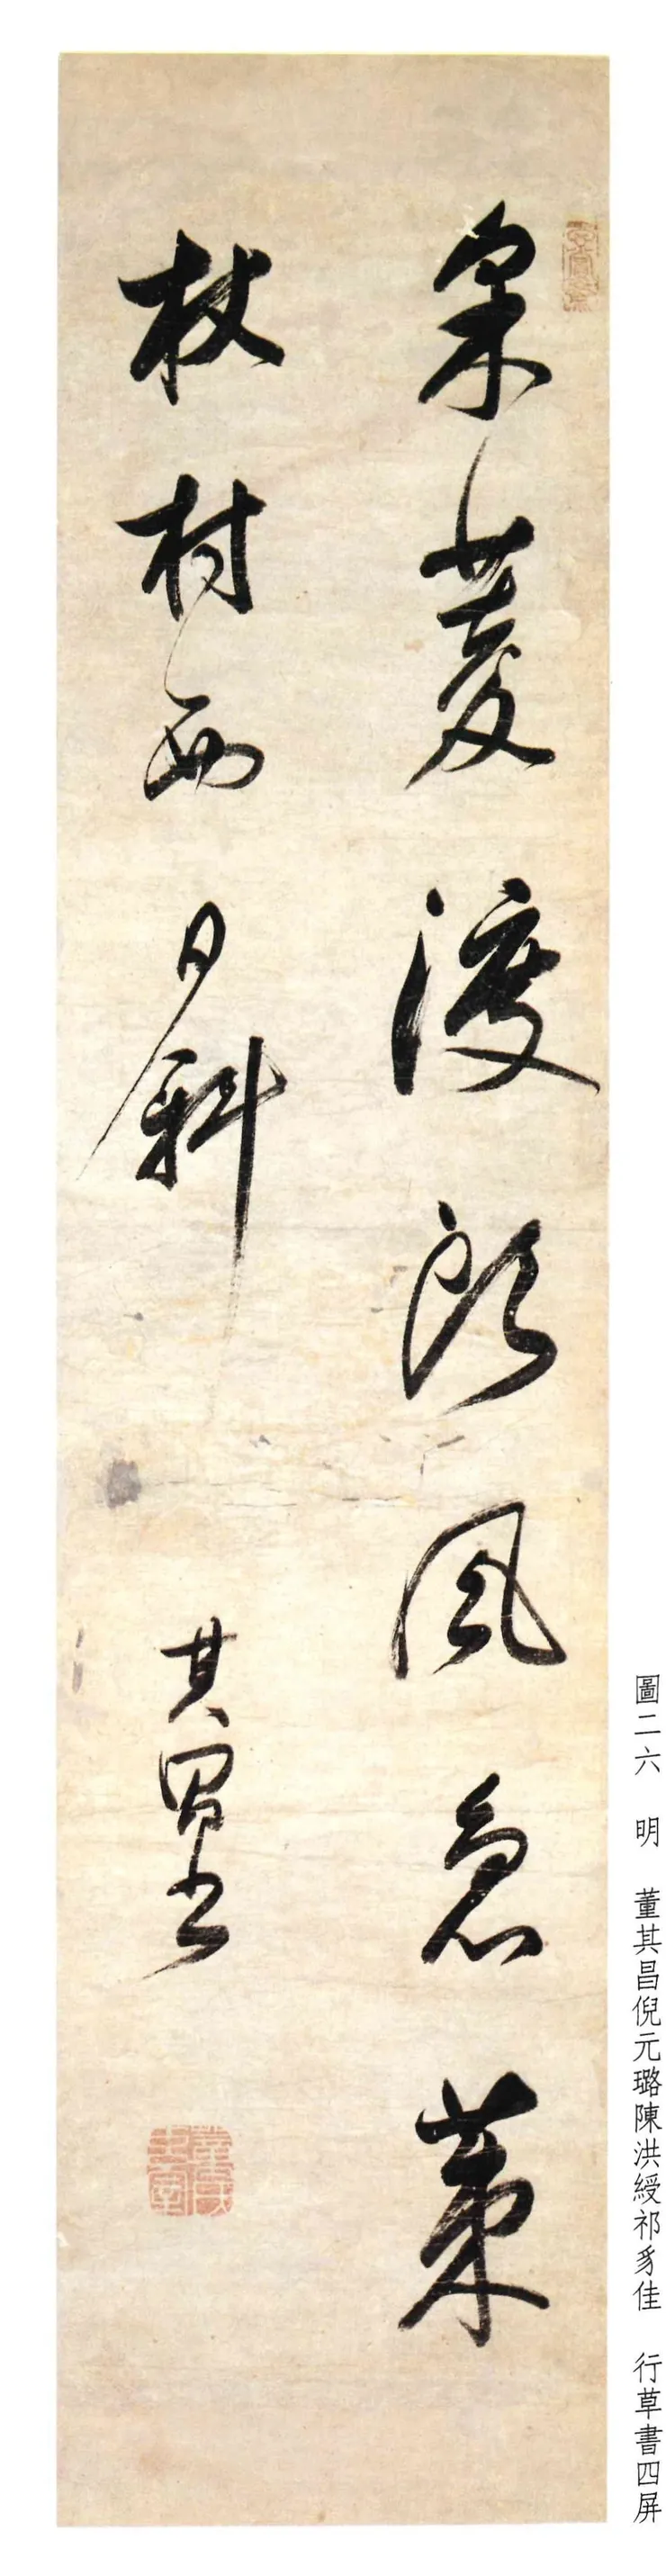 采菱渡頭風急策
杖村西日斜
其昌
圖二六 明 董其昌倪元璐陳洪綬祁豸佳 行草書四屏